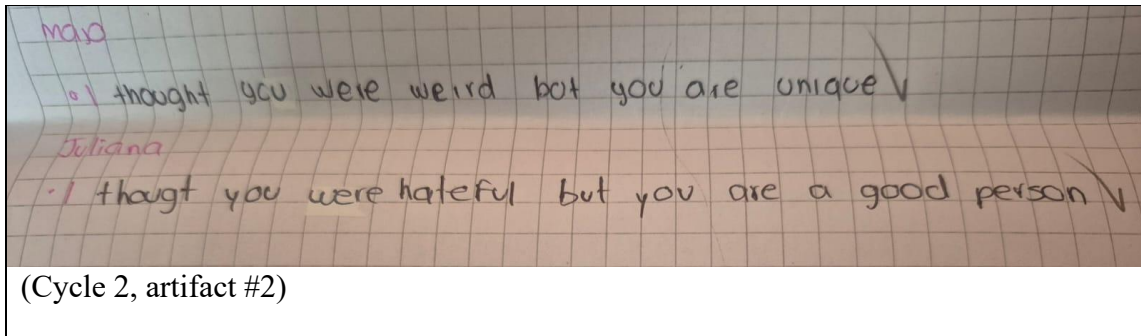 • I thought you were weird but you are unique
Juliana
• I thougt you were hateful but you are a good person
(Cycle 2, artifact #2)